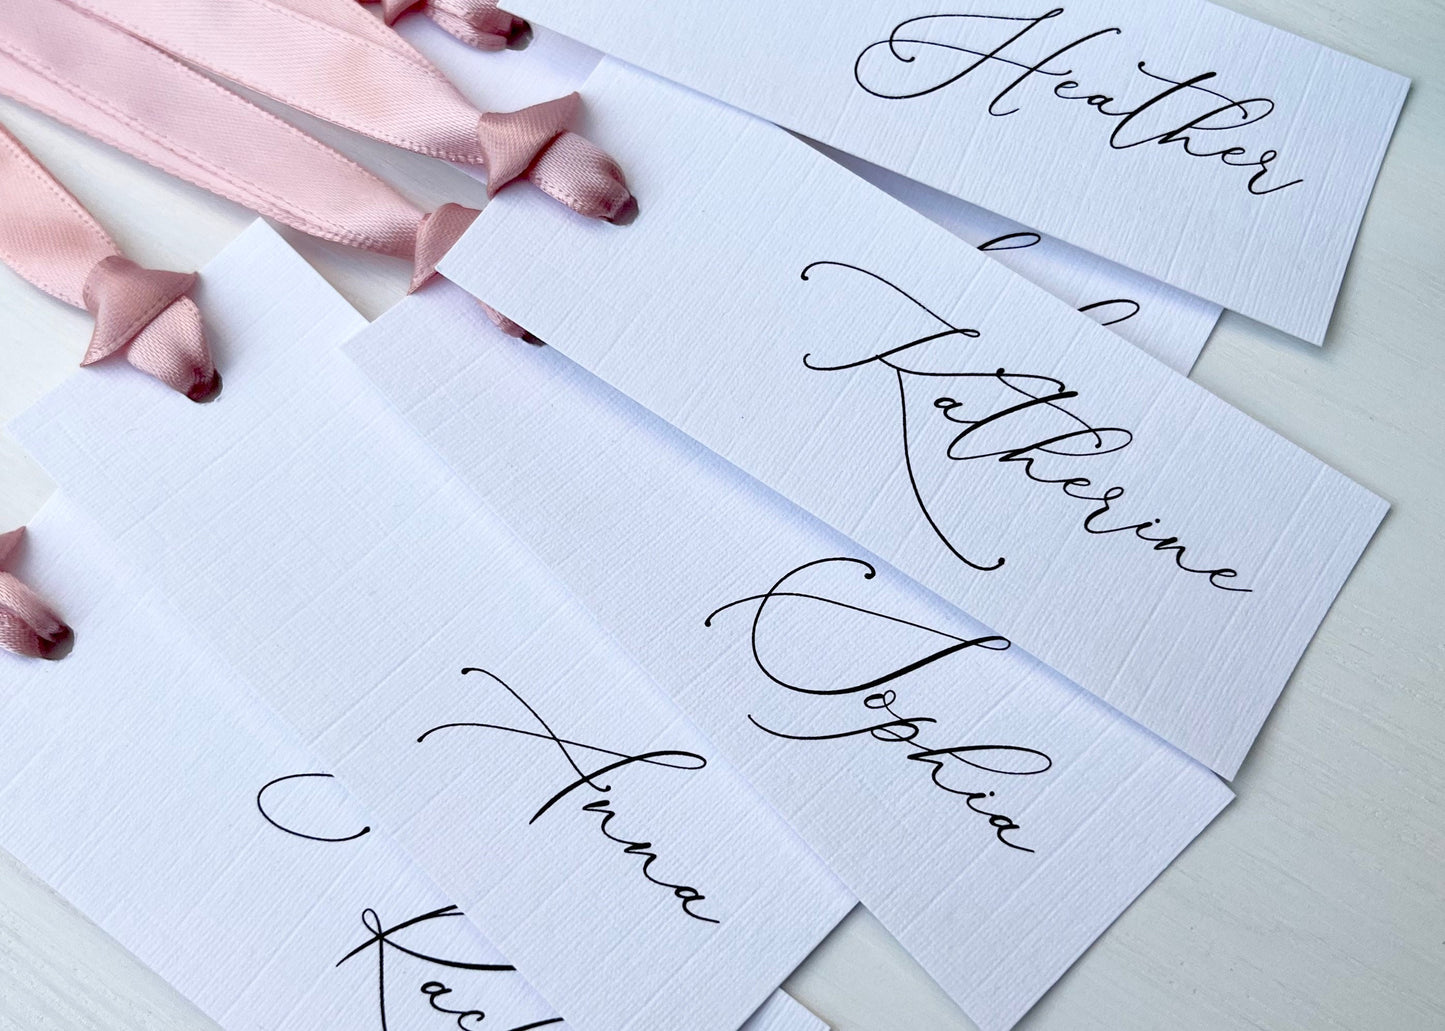 Heather
Katherine
Sophia
Anna
Rach